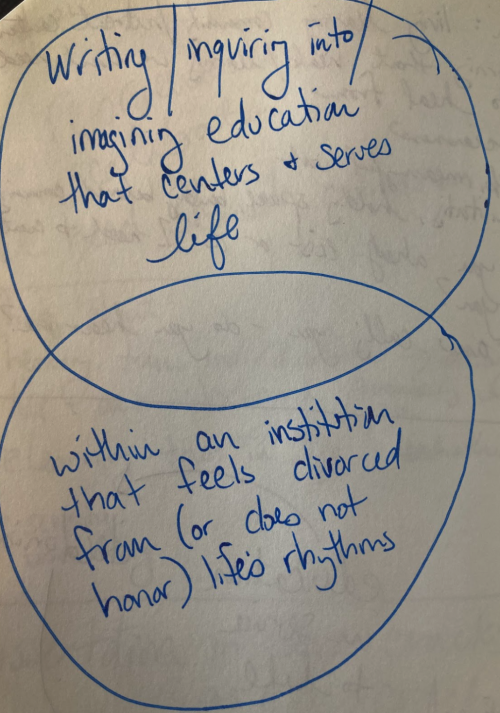 Writing / inquiring into /
imagining education
that centers + serves
life
within an institution
that feels divorced
from (or does not
honor) life's rhythms